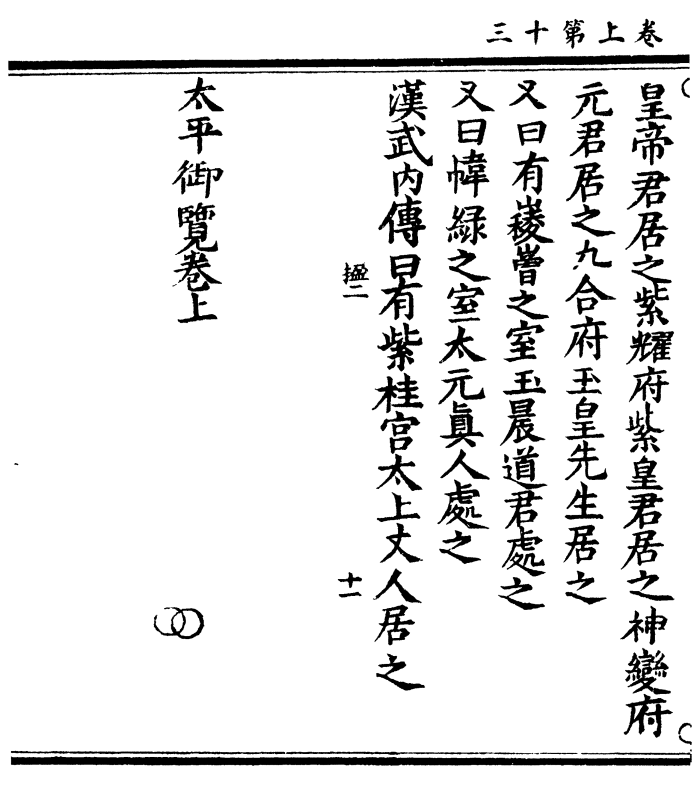 卷上第十三
皇帝君居之紫耀府紫皇君居之神變府
元君居之九合府玉皇先生居之
又曰有㚇嵾之室玉晨道君處之
又曰幃綠之室太元眞人處之
漢武內傳曰有紫桂宮太上丈人居之
揾二
十一
太平御覽卷上